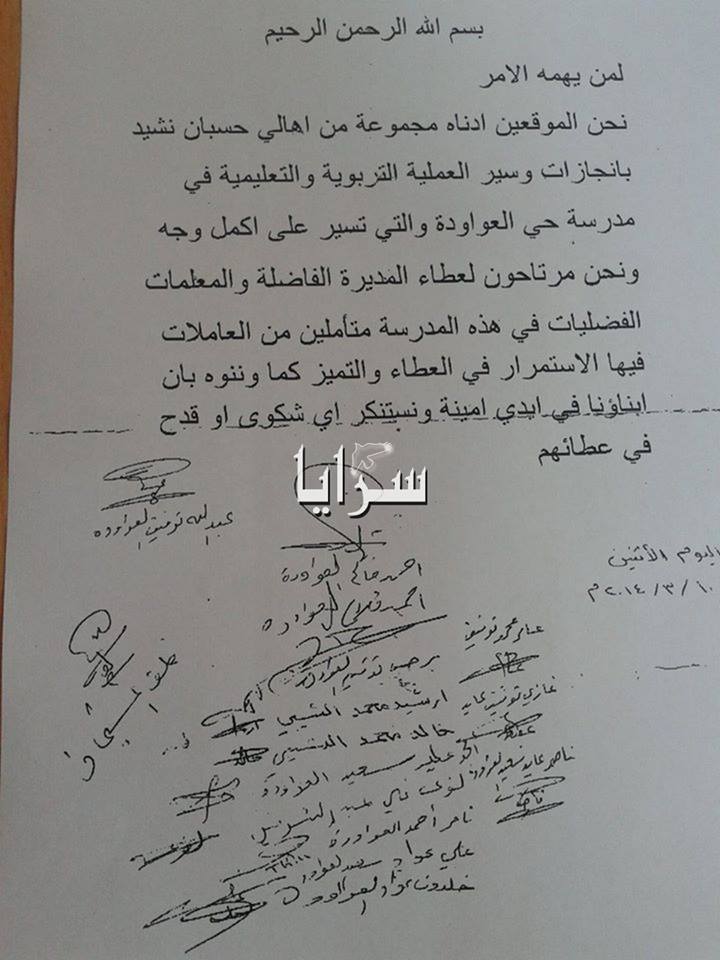 بسم الله الرحمن الرحيم
لمن يهمه الامر
نحن الموقعين ادناه مجموعة من اهالي حسبان نشيد
بانجازات وسير العملية التربوية والتعليمية في
مدرسة حي العواودة والتي تسير على اكمل وجه
ونحن مرتاحون لعطاء المديرة الفاضلة والمعلمات
الفضليات في هذه المدرسة متأملين من العاملات
فيها الاستمرار في العطاء والتميز كما وننوه بان
ابناؤنا في ايدي امينة ونستنكر اي شكوى او قدح
في عطائهم
سرايا
عبد الله توفيق العواوده
اليوم الأثنين
١٠/٣/٢٠١٤م
احمد العواودة
احمد العواودة
ارشيد محمد الشيبي
غازي توفيق عايد
خالد محمد الشيبي
سعيد العواودة
ثامر أحمد العواودة
علي عواد سعيد العواودة
خلدون عواد العواودة